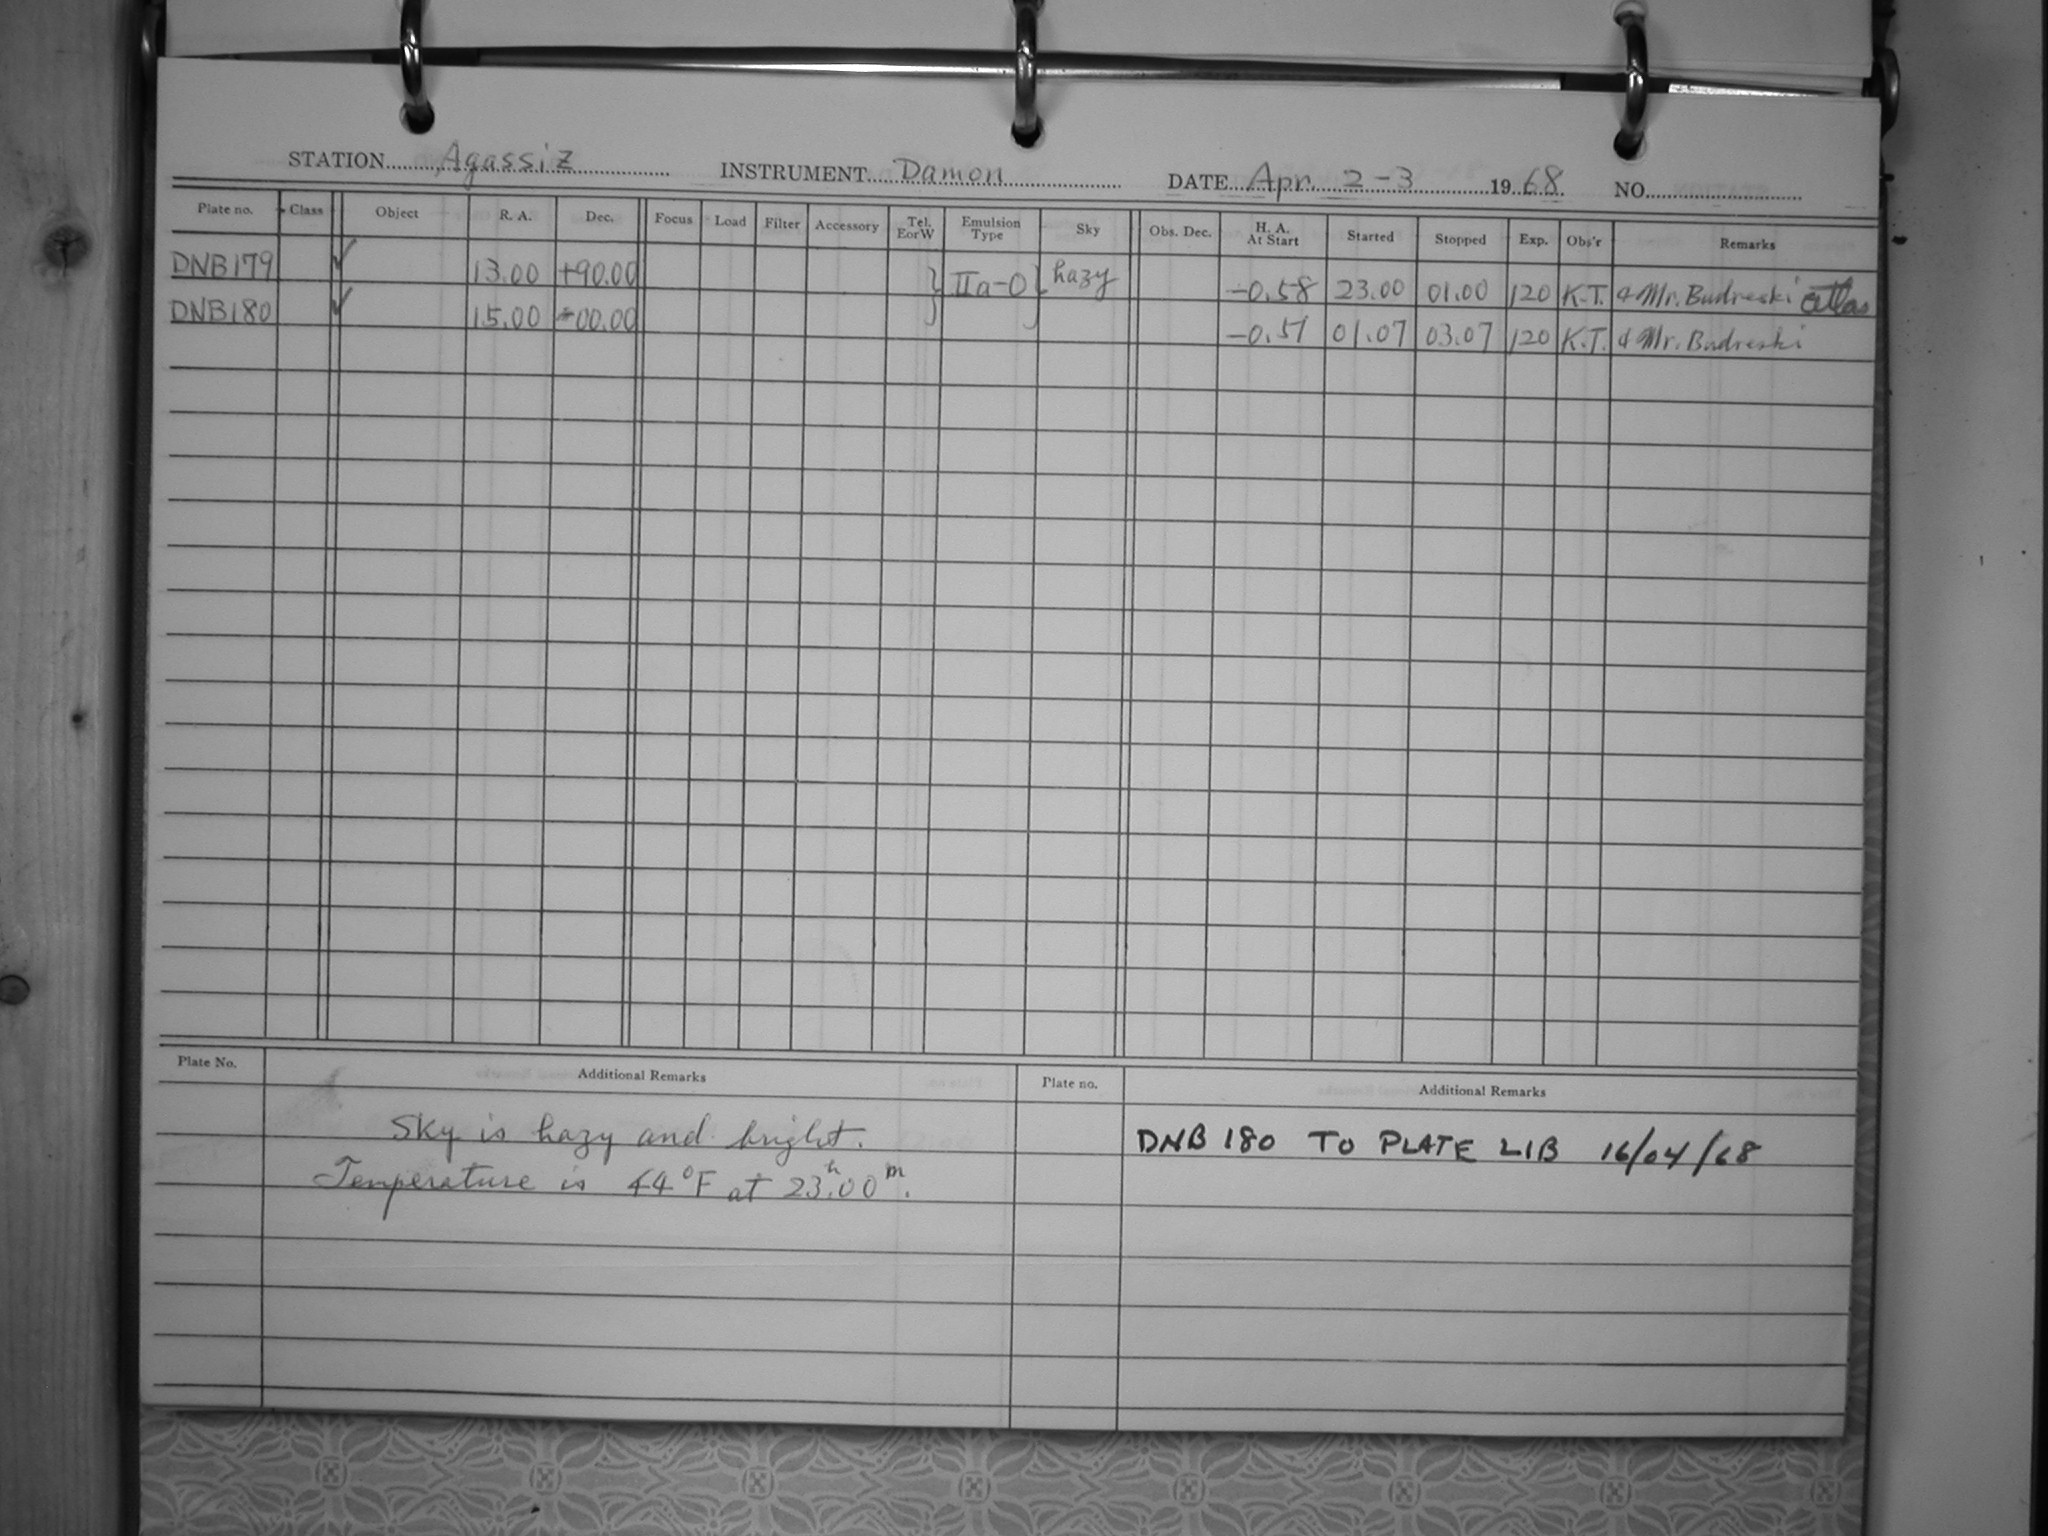 STATION Agassiz INSTRUMENT Damon DATE Apr. 2-3 1968 NO.
Plate no. Class Object R. A. Dec. Focus Load Filter Accessory Tel. EorW Emulsion Type Sky Obs. Dec. H. A. At Start Started Stopped Exp. Obs'r Remarks
DNB179 ✓ 13.00 +90.00 } IIa-O } hazy -0.58 23.00 01.00 120 K.T. & Mr. Budreski atlas
DNB180 ✓ 15.00 00.00 -0.51 01.07 03.07 120 K.T. & Mr. Budreski
Plate No. Additional Remarks Plate no. Additional Remarks
Sky is hazy and bright. DNB 180 TO PLATE LIB 16/04/68
Temperature is 44°F at 23h.00m.